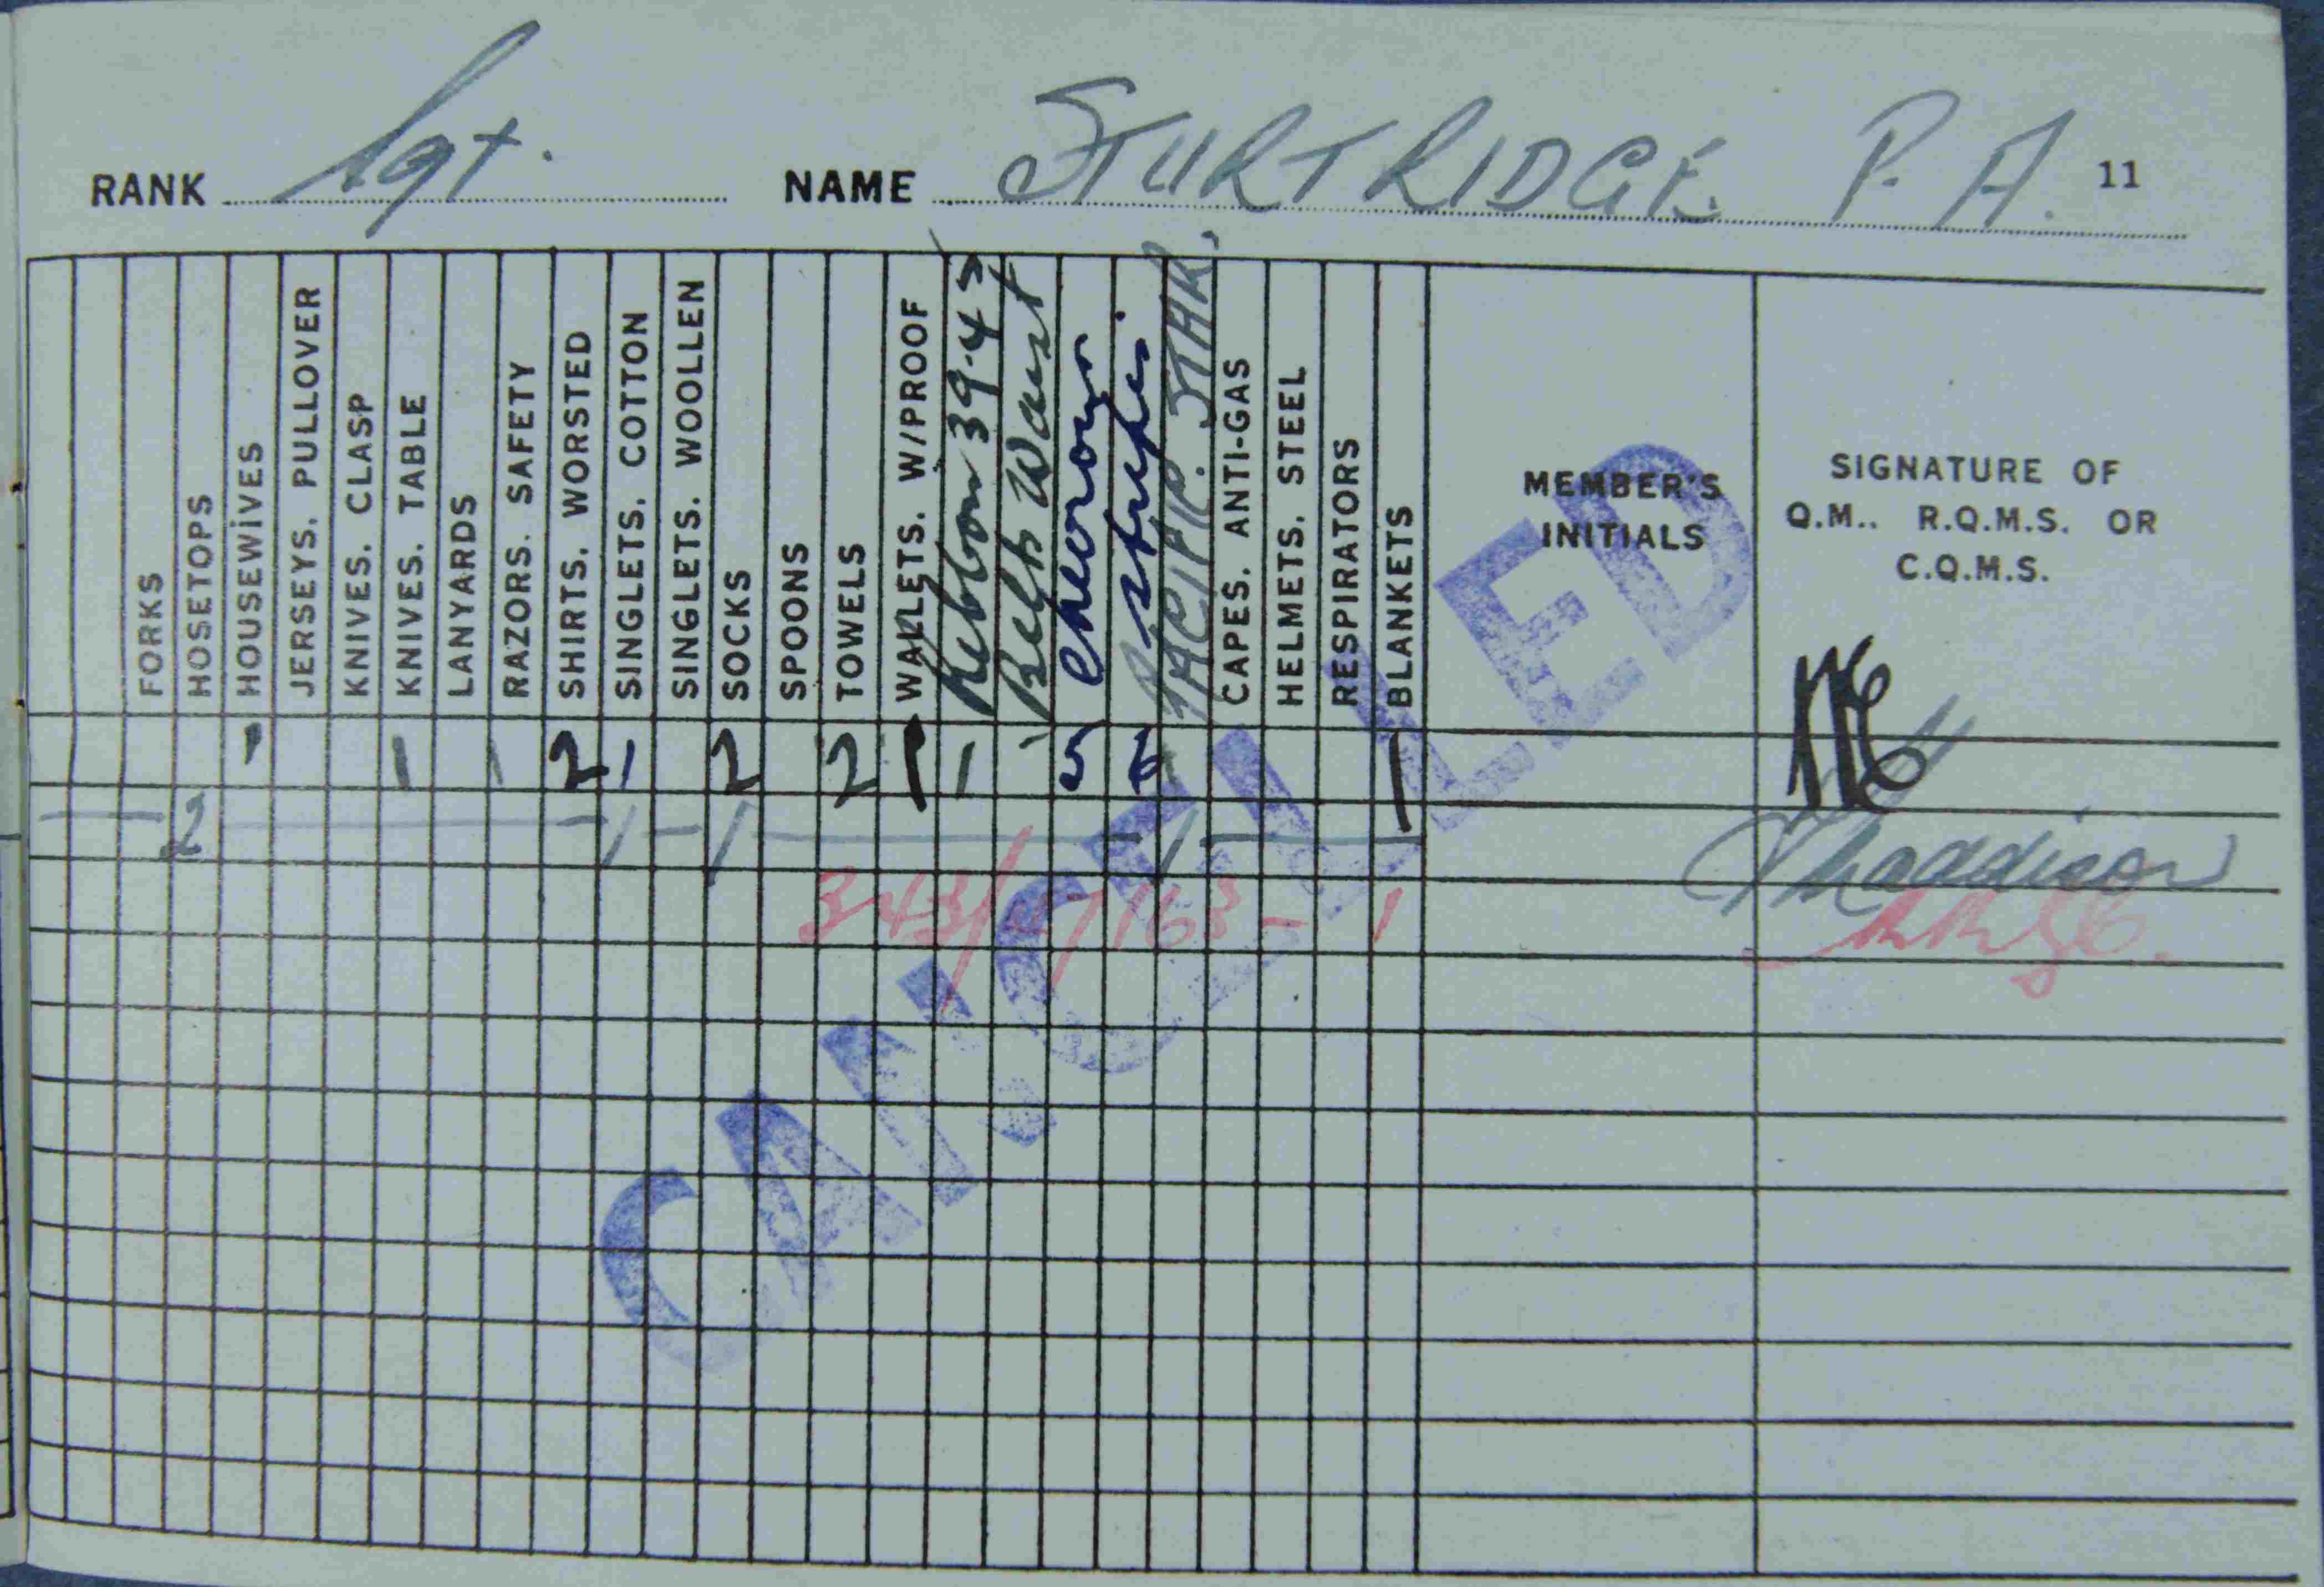 RANK Sgt. NAME STURTRIDGE. P. A. 11
FORKS
HOSETOPS
HOUSEWIVES
JERSEYS, PULLOVER
KNIVES, CLASP
KNIVES, TABLE
LANYARDS
RAZORS, SAFETY
SHIRTS, WORSTED
SINGLETS, COTTON
SINGLETS, WOOLLEN
SOCKS
SPOONS
TOWELS
WALLETS, W/PROOF
Ribbon 39-43
Belts Waist
Chevrons
Stripes.
PACIFIC. STAR.
CAPES, ANTI-GAS
HELMETS, STEEL
RESPIRATORS
BLANKETS
MEMBER'S
INITIALS
SIGNATURE OF
Q.M., R.Q.M.S. OR
C.Q.M.S.
1 1 1 2 1 2 2 1 1 1 5 1
2 — 1 — 1 — 1 —
1
CANCELLED